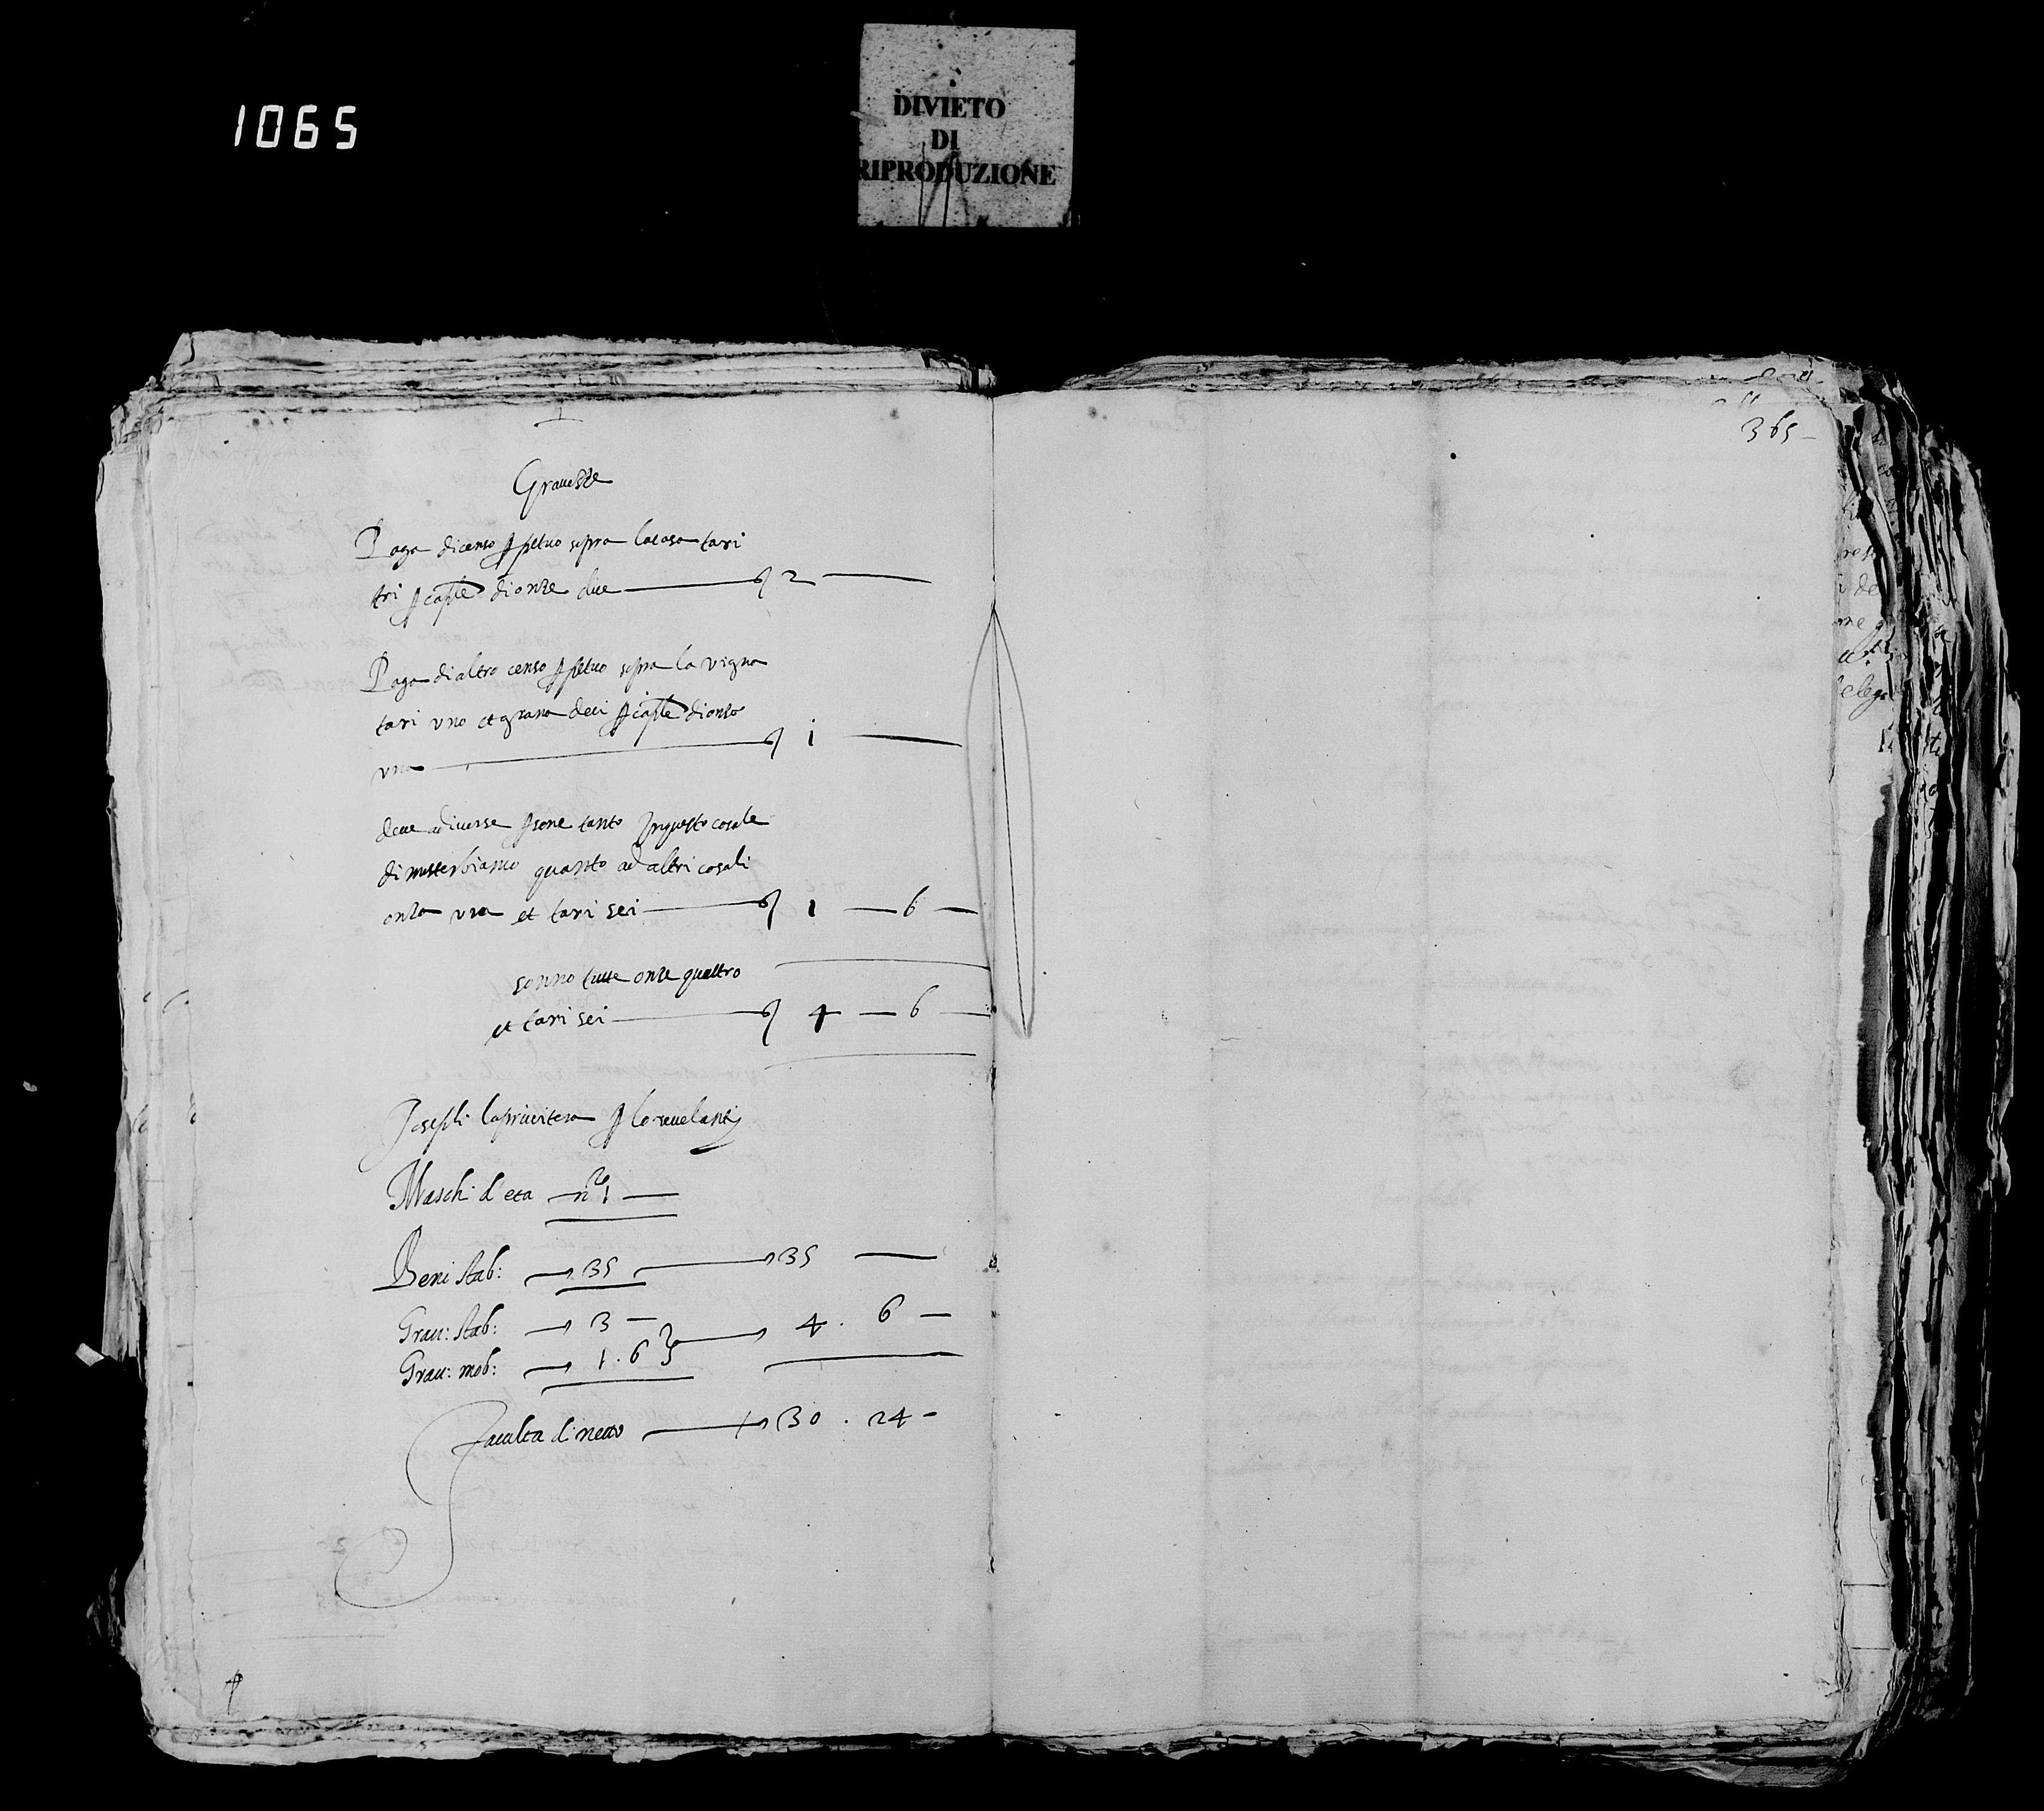 1065
DIVIETO
DI
RIPRODUZIONE
365
Gravezze
Paga di censo ꝑpetuo sopra la casa tari
tri ꝑ cap.le di onze due — 2 —
Paga di altro censo ꝑpetuo sopra la vigna
tari uno et grana deci ꝑ cap.le di onza
una — 1 —
deve a diverse ꝑsone tanto in questo casale
di misterbianco quanto ad altri casali
onza una et tari sei — 1 — 6 —
sonno tutte onze quattro
et tari sei — 4 — 6 —
Josephi la privitera ꝑ lo revelanti
Maschi d'eta — n.o 1 —
Beni stab: 35 — 35 —
Grav: stab: 3 —
4 . 6 —
Grav: mob: 1 . 6
Faculta di netto — 30 . 24 —